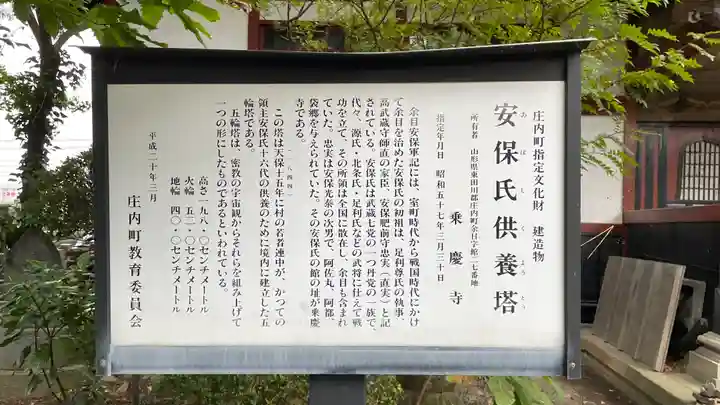 庄内町指定文化財　建造物
安保氏供養塔
あぼしくようとう
所有者　山形県東田川郡庄内町余目字館二七番地
乗慶寺
指定年月日　昭和五十七年三月三十日
余目安保軍記には、室町時代から戦国時代にかけ
て余目を治めた安保氏の初祖は、足利尊氏の執事、
高武蔵守師直の家臣、安保肥前守忠実（直実）と記
されている。安保氏は武蔵七党の一つ丹党の一族で、
代々、源氏・北条氏・足利氏などの武将に仕えて戦
功を立て、その所領は全国に散在し、余目も含まれ
ていた。忠実は安保光泰の次男で、阿佐丸、阿都、
袋郷を与えられていた。その安保氏の館の址が乗慶
寺である。
この塔は天保十五年（一八四四）に村の若者連中が、かつての
領主安保氏十六代の供養のために境内に建立した五
輪塔である。
五輪塔は、密教の宇宙観からそれらを組み上げて
一つの形にしたものであるといわれている。
高さ一九八・〇センチメートル
火輪　五二・〇センチメートル
地輪　四〇・〇センチメートル
平成二十年三月
庄内町教育委員会